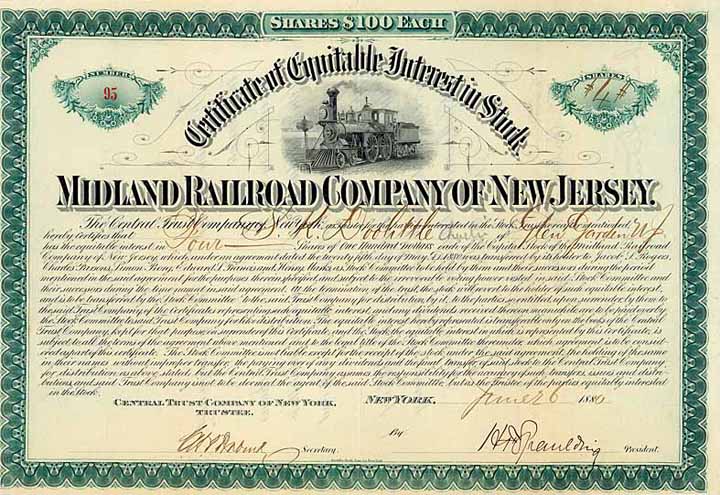 SHARES $100 EACH
NUMBER
95
SHARES
#4#
Certificate of Equitable Interest in Stock.
MIDLAND RAILROAD COMPANY OF NEW JERSEY.
The Central Trust Company of New York, as trustee for the parties interested in the Stock hereinafter mentioned,
hereby certifies that of Glen Gardner N J
has the equitable interest in Four Shares of ONE HUNDRED DOLLARS each of the Capital Stock of the Midland Railroad
Company of New Jersey which, under an agreement dated the twenty fifth day of May, A.D. 1880 was transferred by its holder to Jacob S. Rogers,
Charles Parsons, Simon Borg, and Henry as Stock Committee to be held by them and their successors during the period
mentioned in the said agreement for the purposes therein specified, and subject to the irrevocable voting power vested in said Stock Committee and
their successors during the time named in said agreement. At the termination of the trust, the stock will revert to the holder of such equitable interest,
and is to be transferred by the Stock Committee to the said Trust Company for distribution, by it, to the parties so entitled upon surrender by them to
the said Trust Company of the Certificates representing such equitable interest, and any dividends received thereon immediately are to be paid over by
the Stock Committee to said Trust Company for like distribution. The equitable interest hereby represented is transferable only in the books of the Central
Trust Company, kept for that purpose, on surrender of this certificate, and the Stock, the equitable interest in which is represented by this certificate, is
subject to all the terms of the agreement above mentioned and to the legal title of the Stock Committee thereunder, which agreement is to be consid-
ered as part of this certificate. The Stock Committee is not liable except for the receipt of the stock under the said agreement, the holding of the same
in their names without improper transfer, the paying over of any dividends and the final transfer of said stock to the Central Trust Company
for distribution, as above stated, but the Central Trust Company assumes the responsibility for the accuracy of such transfers, issues and distri-
butions, and said Trust Company is not to be deemed the agent of the said Stock Committee, but as the Trustee of the parties equitably interested
in the Stock.
CENTRAL TRUST COMPANY OF NEW YORK,
TRUSTEE.
NEW YORK, June 26 1880
By
Secretary.
H F Spaulding President.